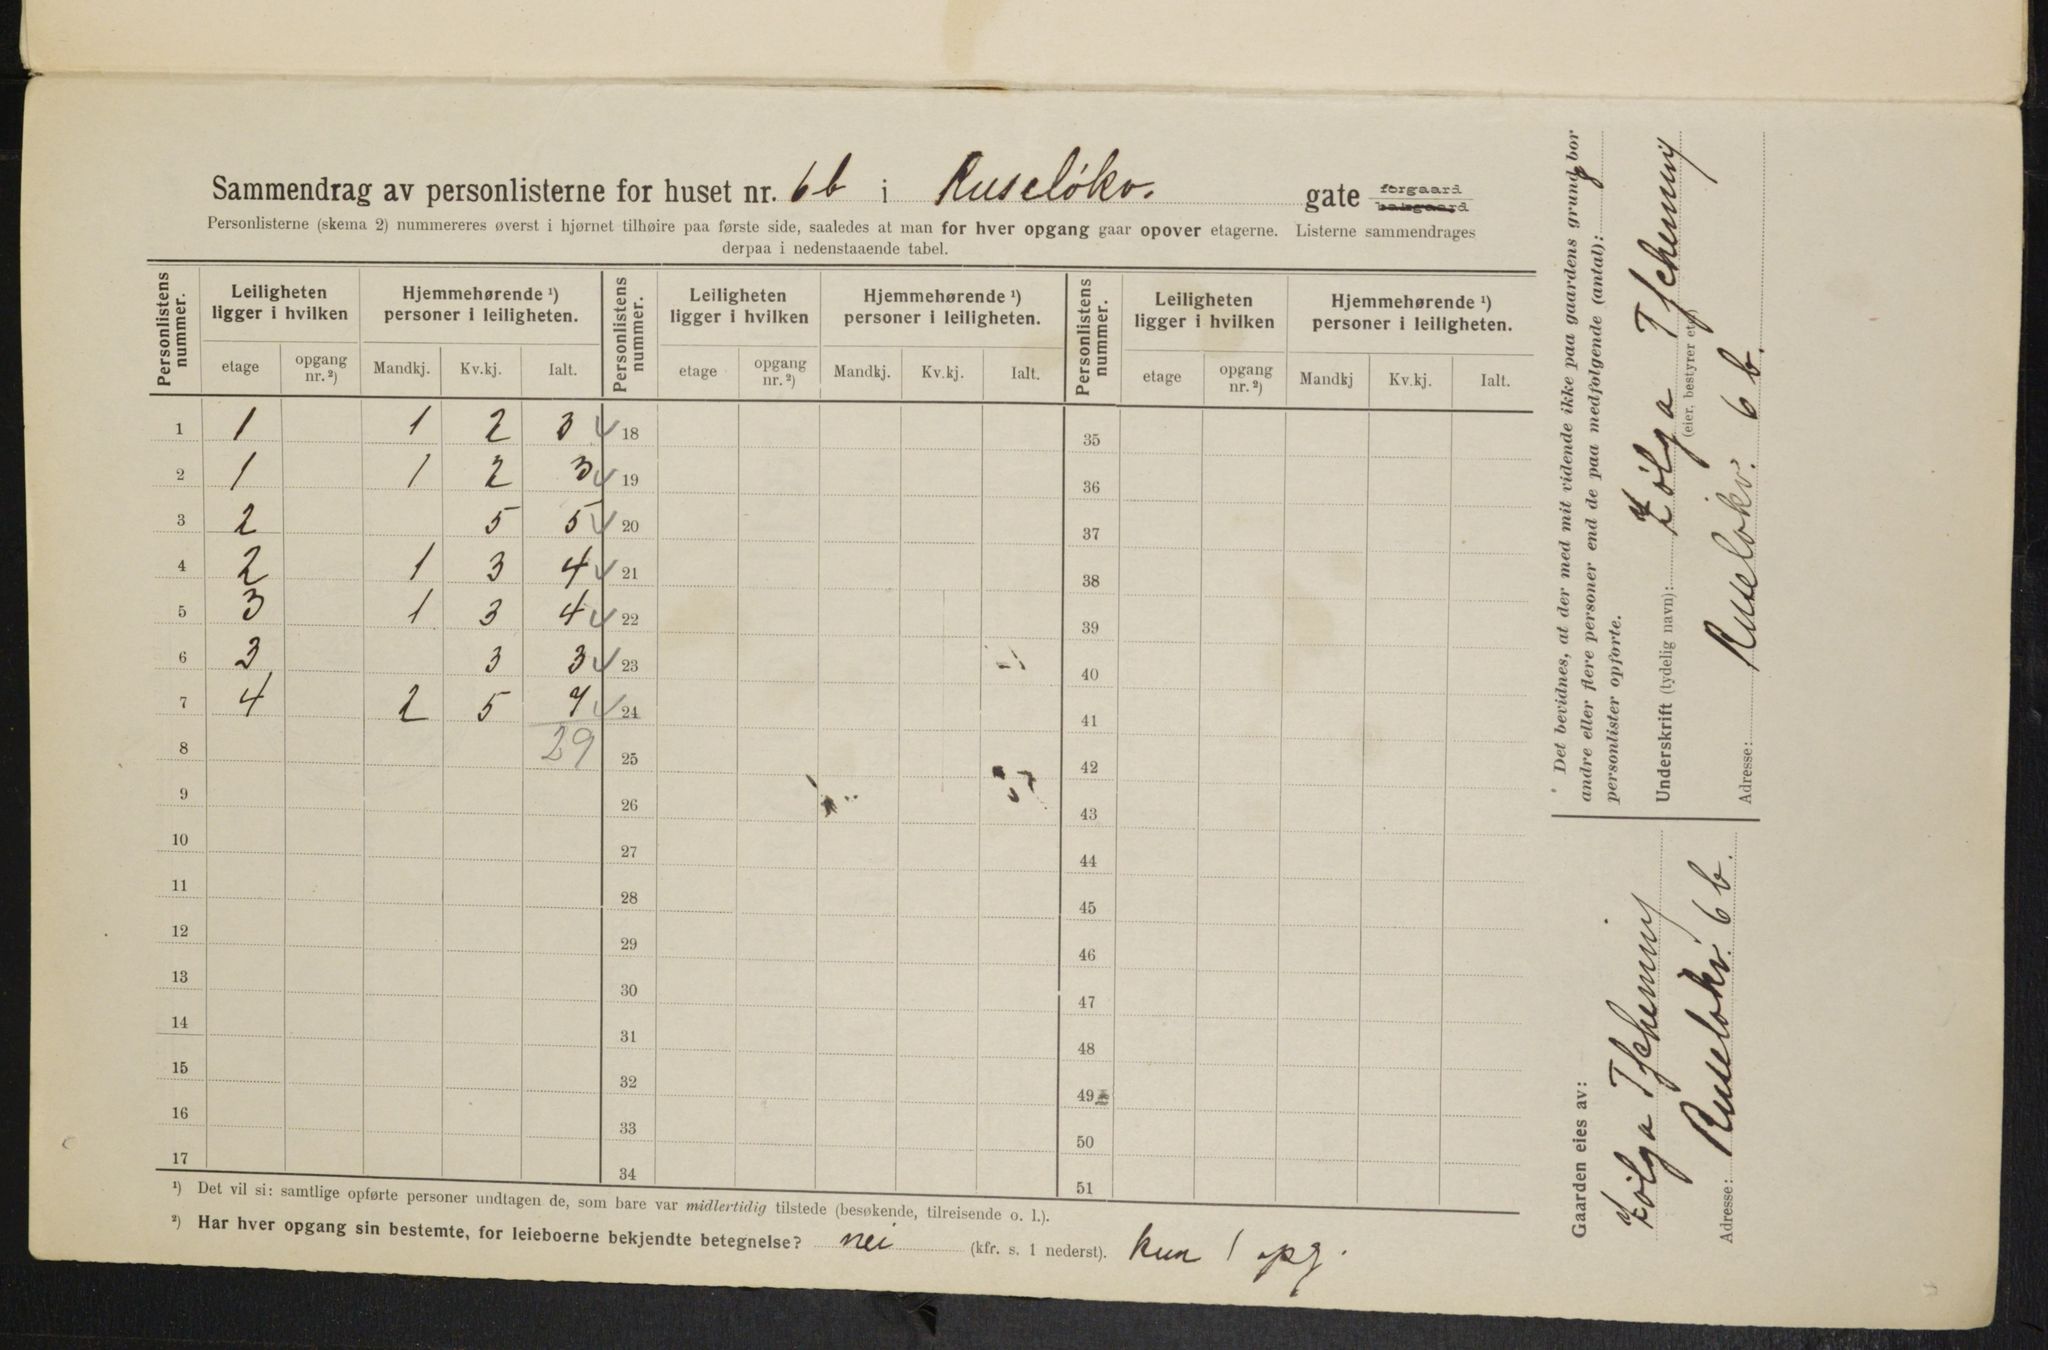 Sammendrag av personlisterne for huset nr. 6b i Ruseløkv. gate forgaard bakgaard
Personlisterne (skema 2) nummereres øverst i hjørnet tilhøire paa første side, saaledes at man for hver opgang gaar opover etagerne. Listerne sammendrages
derpaa i nedenstaaende tabel.
Personlistens nummer. Leiligheten ligger i hvilken Hjemmehørende ¹) personer i leiligheten. Personlistens nummer. Leiligheten ligger i hvilken Hjemmehørende ¹) personer i leiligheten. Personlistens nummer. Leiligheten ligger i hvilken Hjemmehørende ¹) personer i leiligheten.
etage opgang nr. ²) Mandkj. Kv.kj. Ialt. etage opgang nr. ²) Mandkj. Kv.kj. Ialt. etage opgang nr. ²) Mandkj Kv.kj. Ialt.
1 1 1 2 3 18 35
2 1 1 2 3 19 36
3 2 5 5 20 37
4 2 1 3 4 21 38
5 3 1 3 4 22 39
6 3 3 3 23 40
7 4 2 5 7 24 41
8 29 25 42
9 26 43
10 27 44
11 28 45
12 29 46
13 30 47
14 31 48
15 32 49
16 33 50
17 34 51
¹) Det vil si: samtlige opførte personer undtagen de, som bare var midlertidig tilstede (besøkende, tilreisende o. l.).
²) Har hver opgang sin bestemte, for leieboerne bekjendte betegnelse? nei (kfr. s. 1 nederst). kun 1 opg.
Det bevidnes, at der med mit vidende ikke paa gaardens grund bor
andre eller flere personer end de paa medfølgende (antal): 7
personlister opførte.
Underskrift (tydelig navn): Helga Tscherning
(eier, bestyrer etc.)
Adresse: Ruseløkv. 6 b.
Gaarden eies av:
Helga Tscherning
Adresse: Ruseløkv. 6 b.